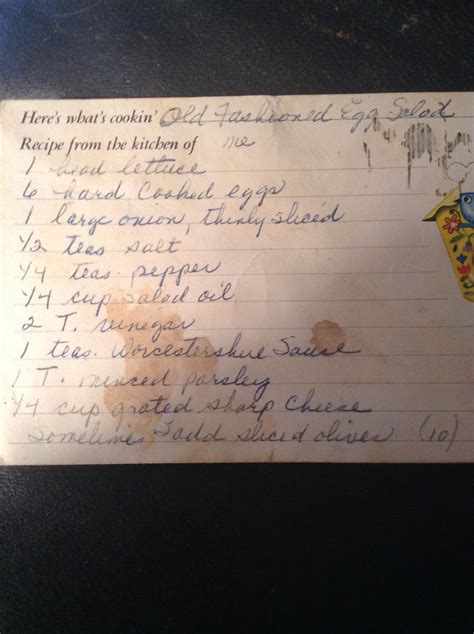 Here's what's cookin' Old Fashioned Egg Salad
Recipe from the kitchen of me
1 head lettuce
6 hard cooked eggs
1 large onion, thinly sliced
1/2 teas salt
1/4 teas. pepper
1/4 cup salad oil
2 T. vinegar
1 teas. Worcestershire Sause
1 T. minced parsley
1/4 cup grated sharp cheese
Sometimes I add sliced olives (10)